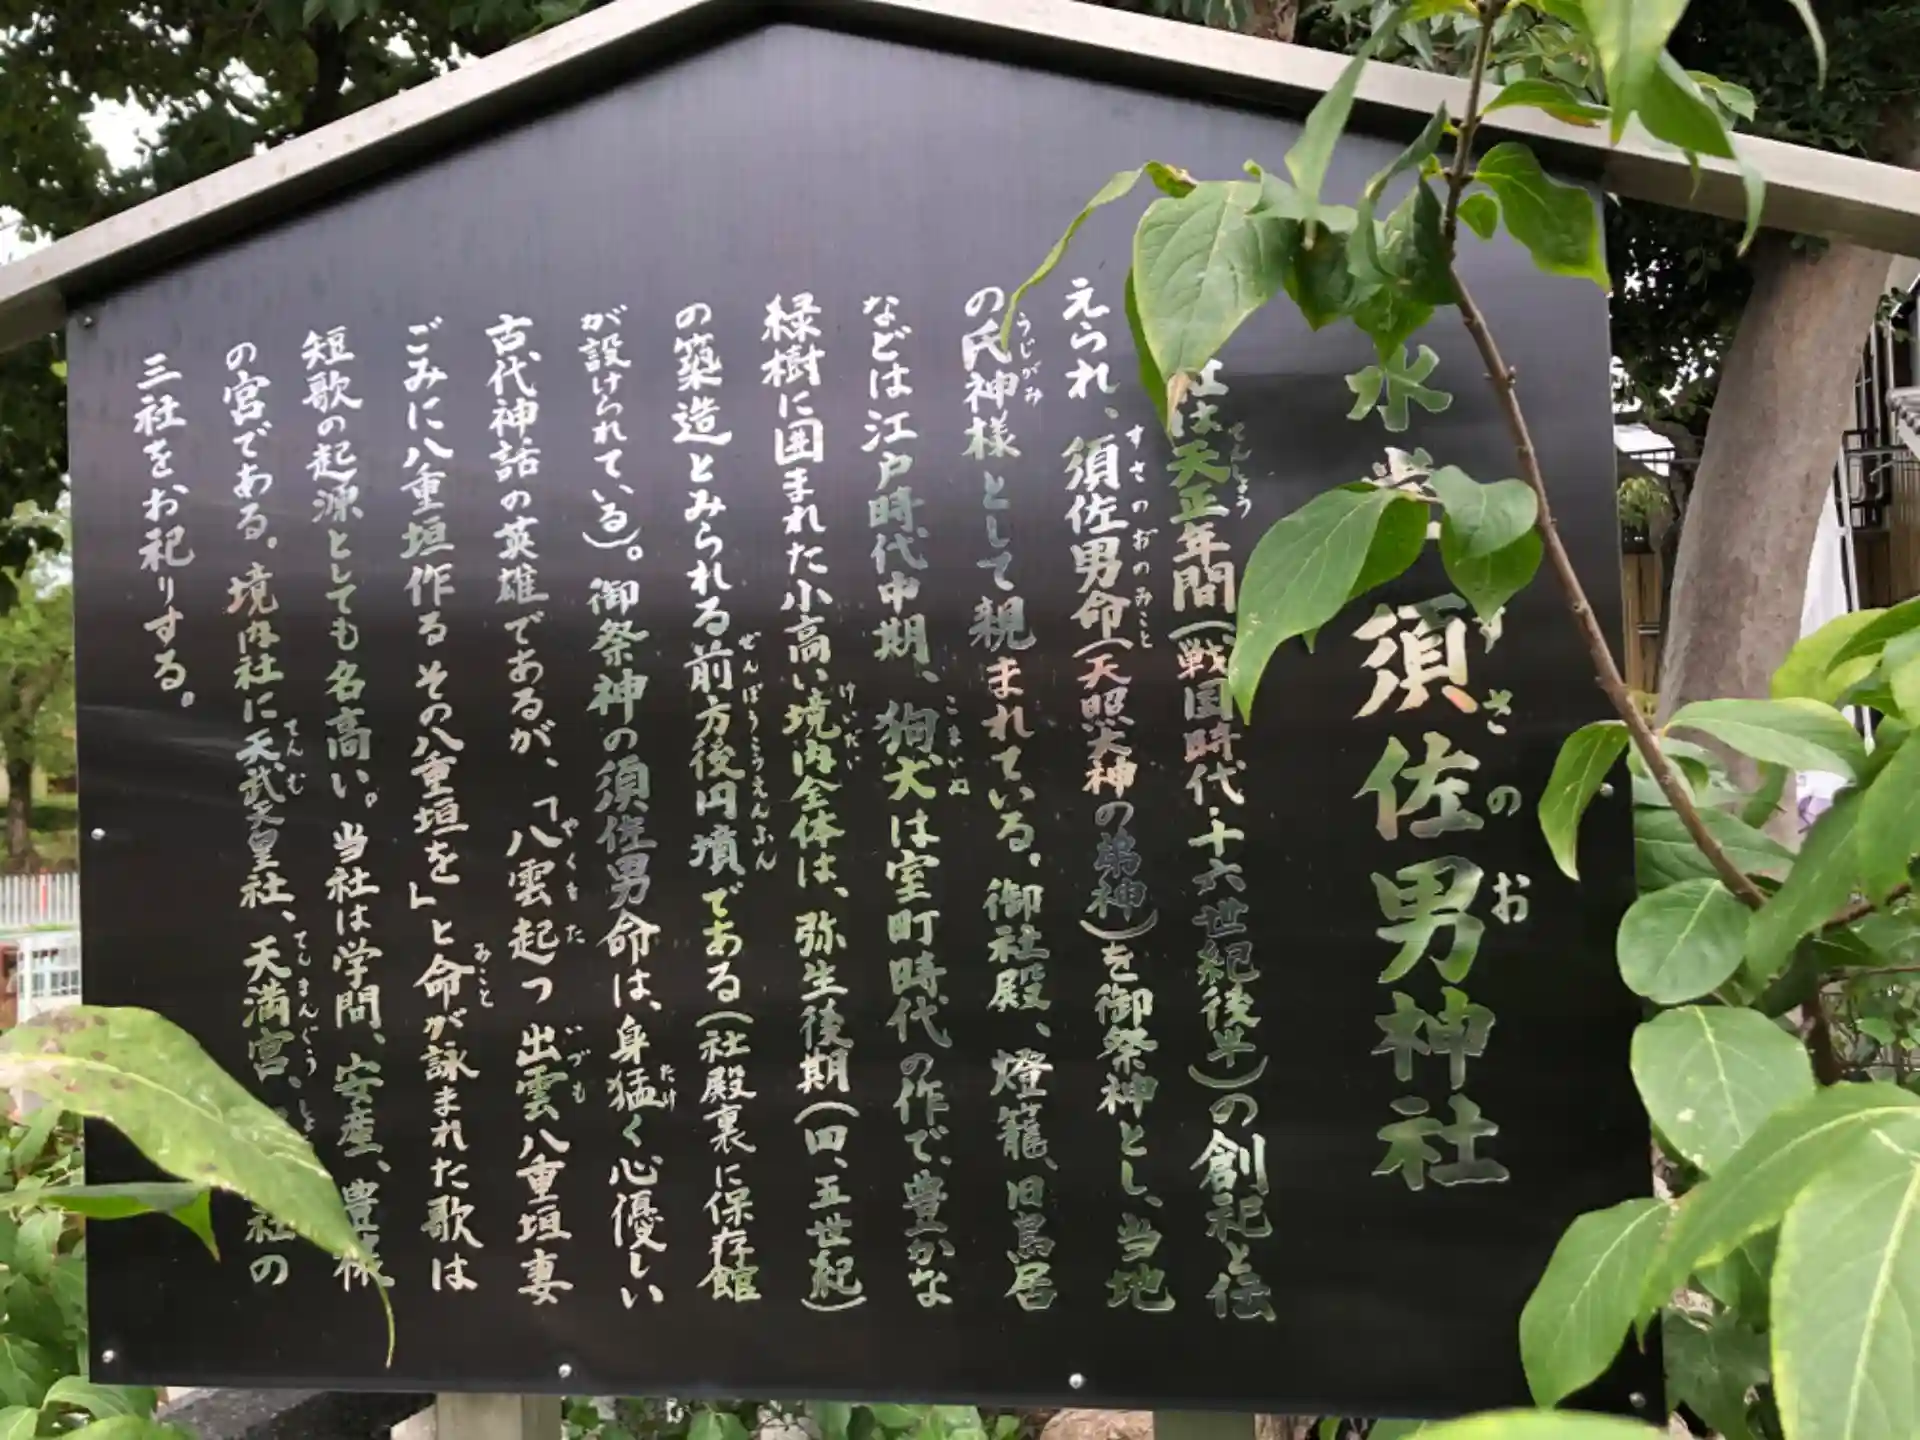 水 須佐男神社
すさのお
社は天正年間(戦国時代・十六世紀後半)の創祀と伝
てんしょう
えられ、須佐男命(天照大神の弟神)を御祭神とし、当地
すさのおのみこと
の氏神様として親まれている。御社殿、燈籠、旧鳥居
うじがみ
などは江戸時代中期、狗犬は室町時代の作で、豊かな
こまいぬ
緑樹に囲まれた小高い境内全体は、弥生後期(四、五世紀)
けいだい
の築造とみられる前方後円墳である(社殿裏に保存館
ぜんぽうこうえんふん
が設けられている)。御祭神の須佐男命は、身猛く心優しい
たけ
古代神話の英雄であるが、「八雲起つ出雲八重垣妻
やくもた いづも
ごみに八重垣作るその八重垣を」と命が詠まれた歌は
みこと
短歌の起源としても名高い。当社は学問、安産、豊
の宮である。境内社に天武天皇社、天満宮、 社の
てんむ てんまんぐう
三社をお祀りする。